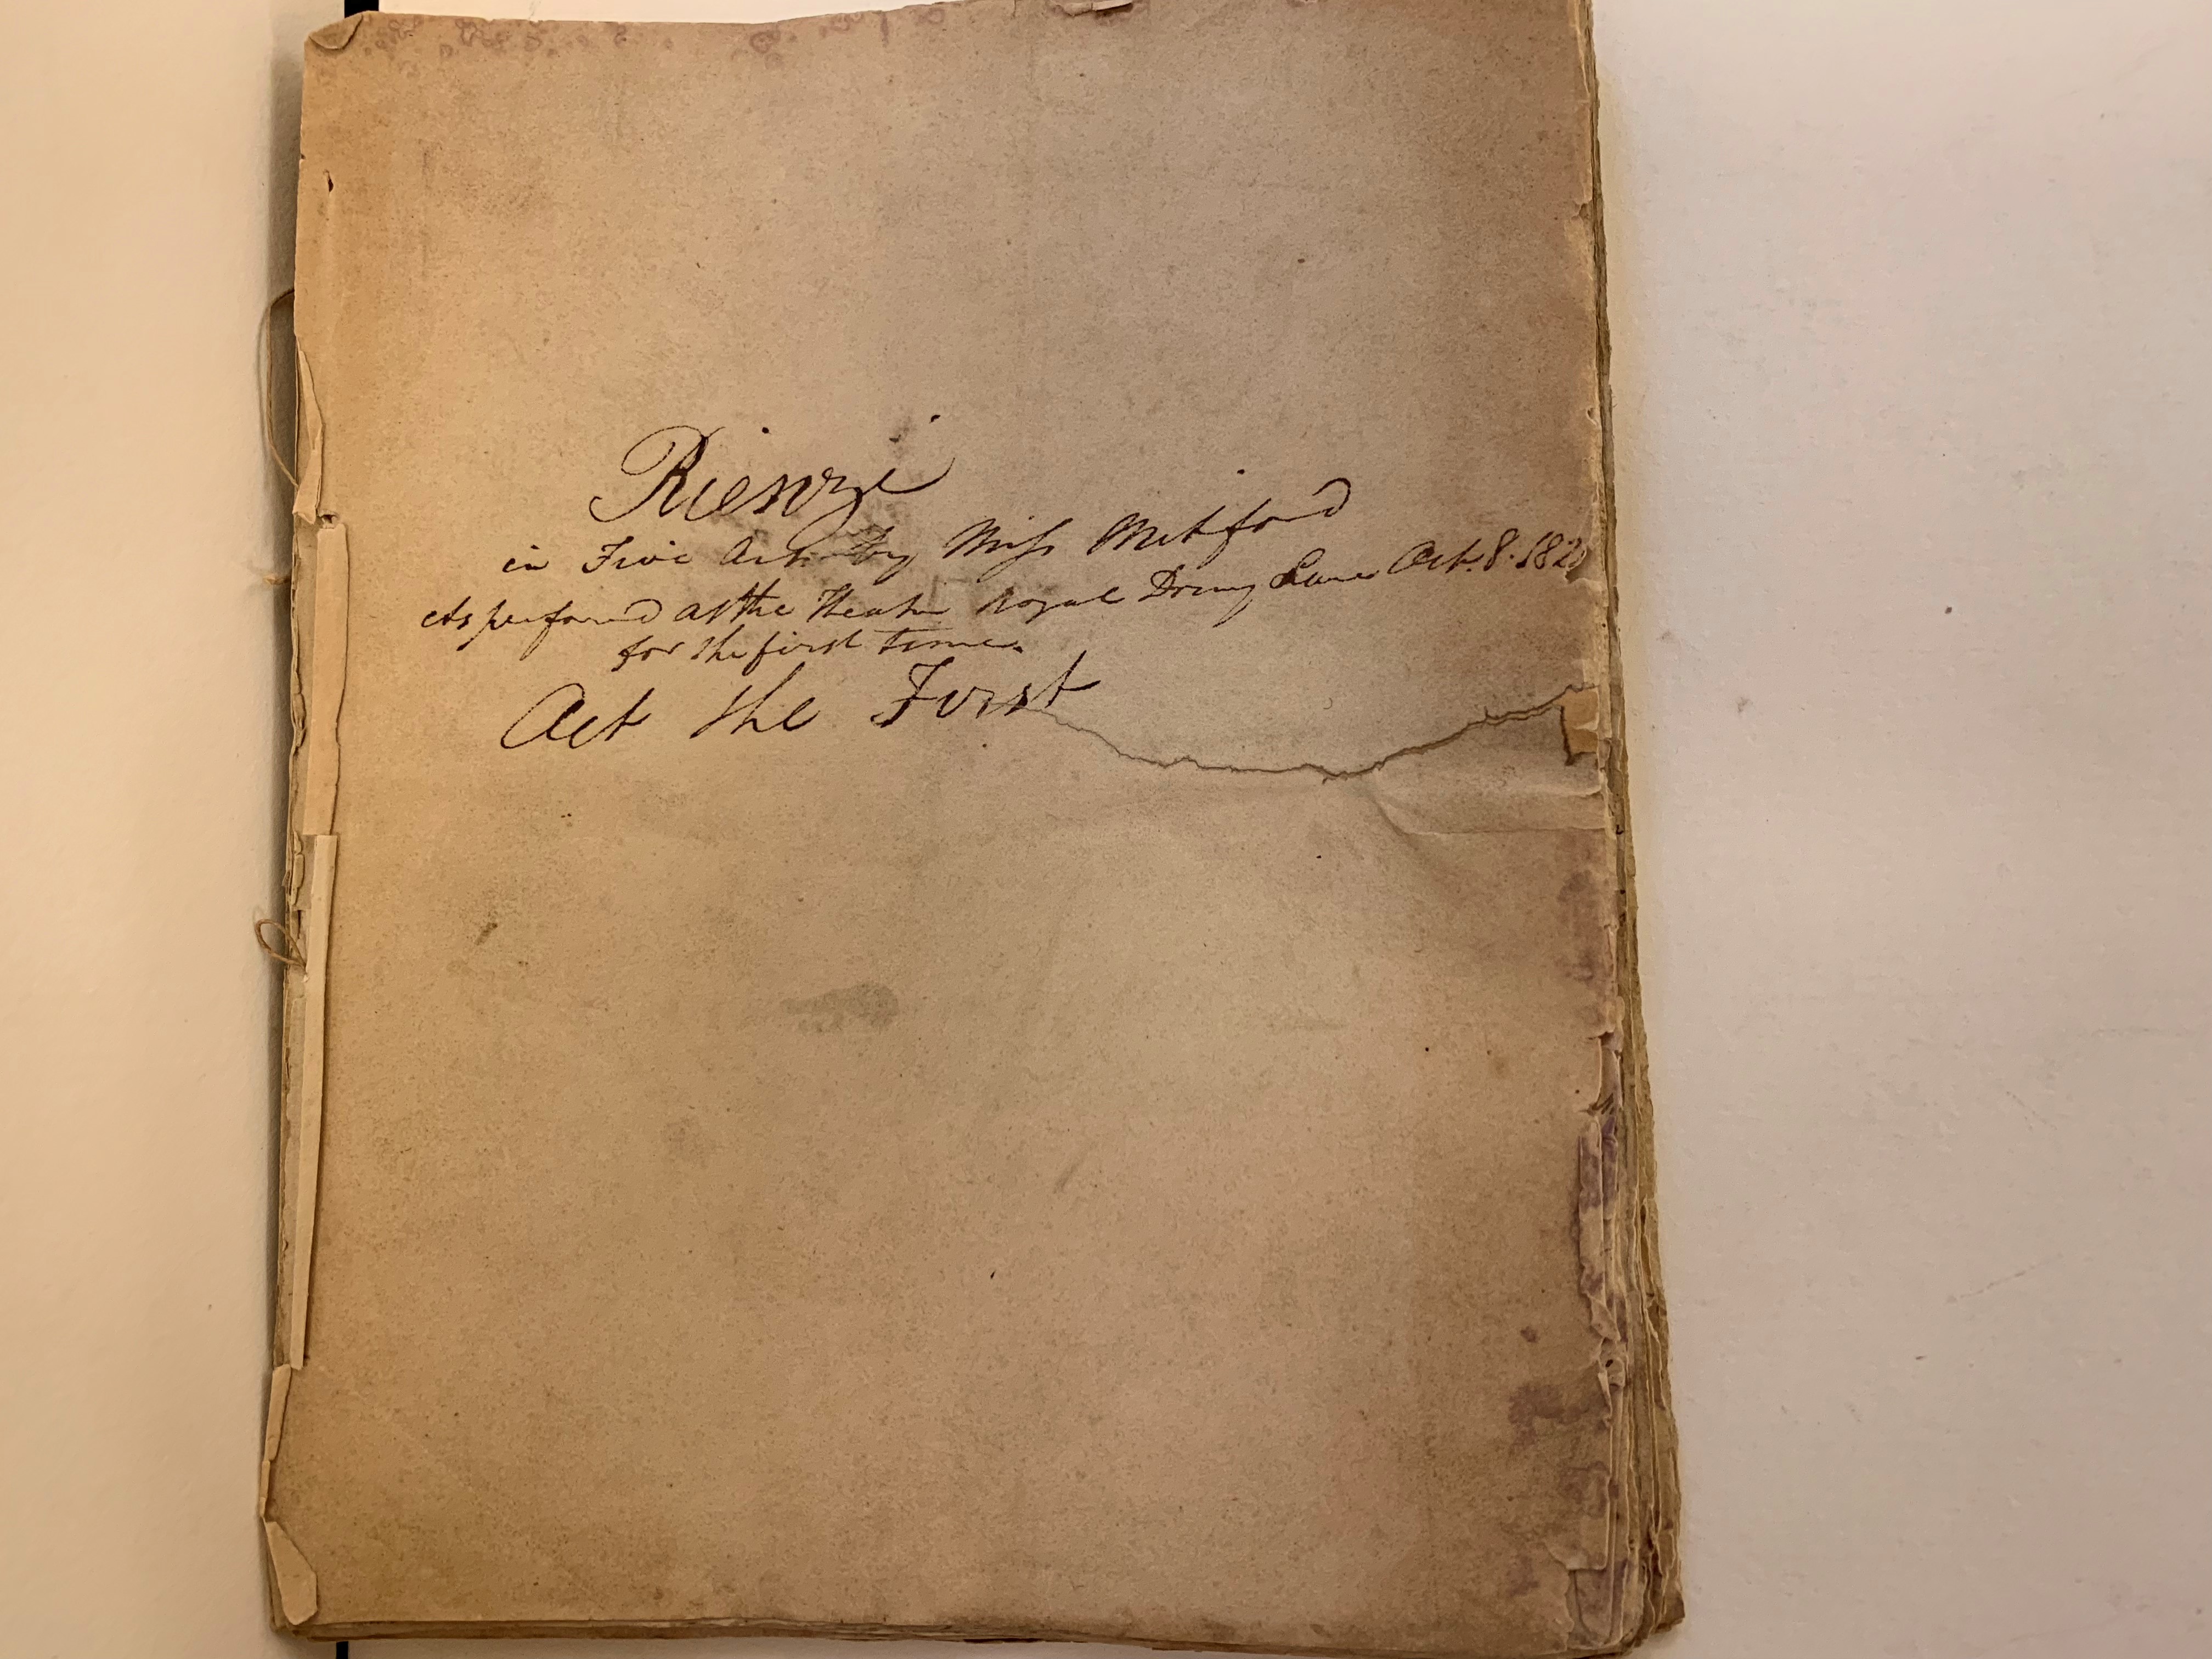 Rienzi
in Five Acts by Miss Mitford
As performed at the Theatre Royal Drury Lane Oct. 8. 182
for the first time.
Act the First